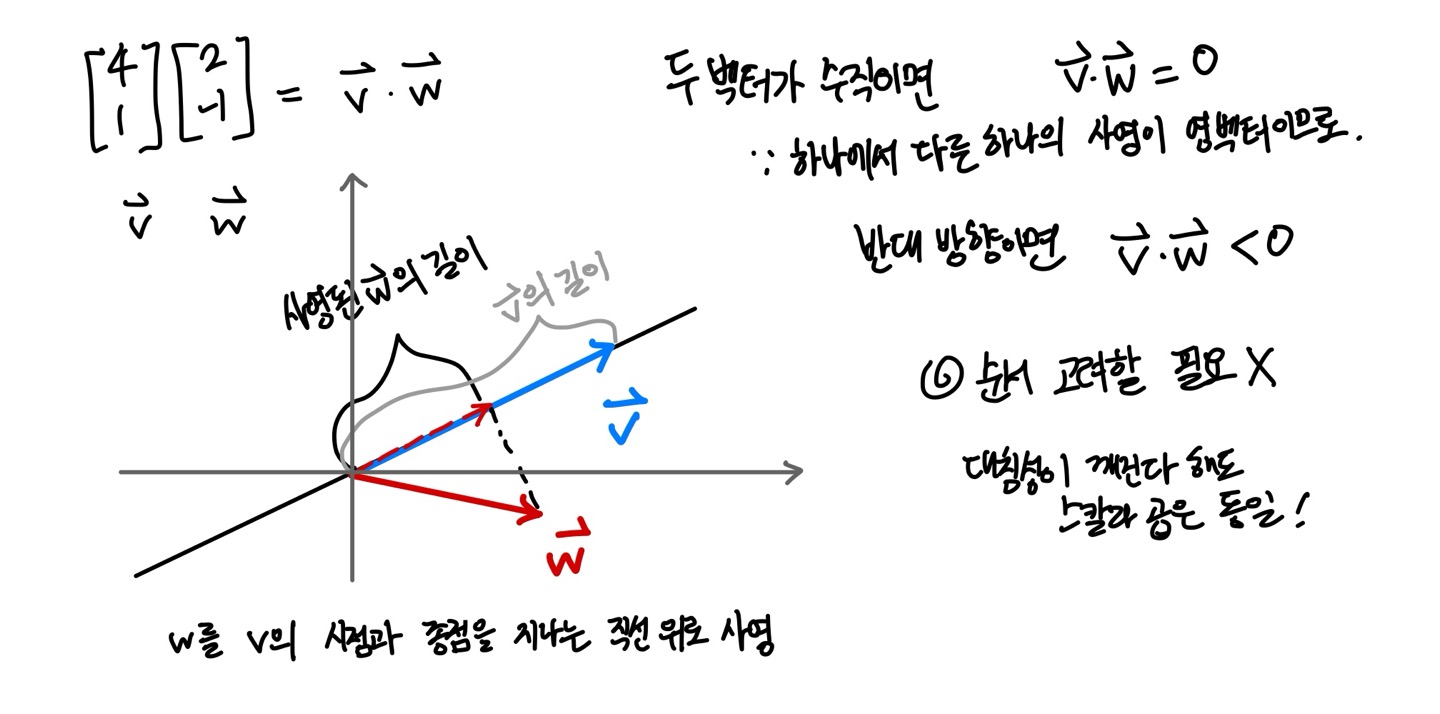 [4 1] [2 -1] = v · w
v w
사영된 w의 길이
v의 길이
v
w
w를 v의 시점과 종점을 지나는 직선 위로 사영
두 벡터가 수직이면 v·w = 0
∵ 하나에서 다른 하나의 사영이 영벡터이므로.
반대 방향이면 v·w < 0
◎ 순서 고려할 필요 X
대칭성이 깨진다 해도
스칼라 곱은 동일!